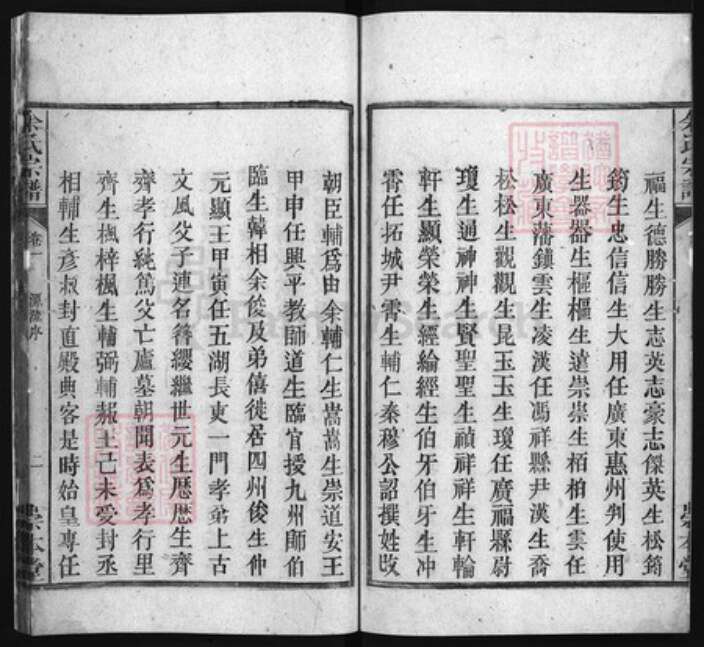 福生德勝勝生志英志豪志傑英生松錡
筠生忠信信生大用任廣東惠州判使用
生器器生樞樞生遠崇崇生栢栢生雲任
廣東藩鎮雲生凌漢任馮祥縣尹漢生喬
松松生觀觀生昆玉玉生瓊任廣福縣尉
瓊生通神神生賢聖聖生禎祥祥生軒輪
軒生顯榮榮生經綸經生伯牙伯牙生冲
霄任拓城尹霄生輔仁秦穆公詔撰姓改
余氏宗譜
卷一
源流序
二
崇本堂
朝臣輔爲由余輔仁生嵩嵩生崇道安王
甲申任興平教師道生臨官授九州師伯
臨生韓相余俊及弟僖徒居四州俊生仲
元顯王甲寅任五湖長東一門孝弟上古
文風父子連名簪纓繼世元生歷歷生齊
齊孝行純篤父亡廬墓朝聞表爲孝行里
齊生楓梓楓生輔弼輔赧王己未受封丞
相輔生彥叔封直殿典客是時始皇專任